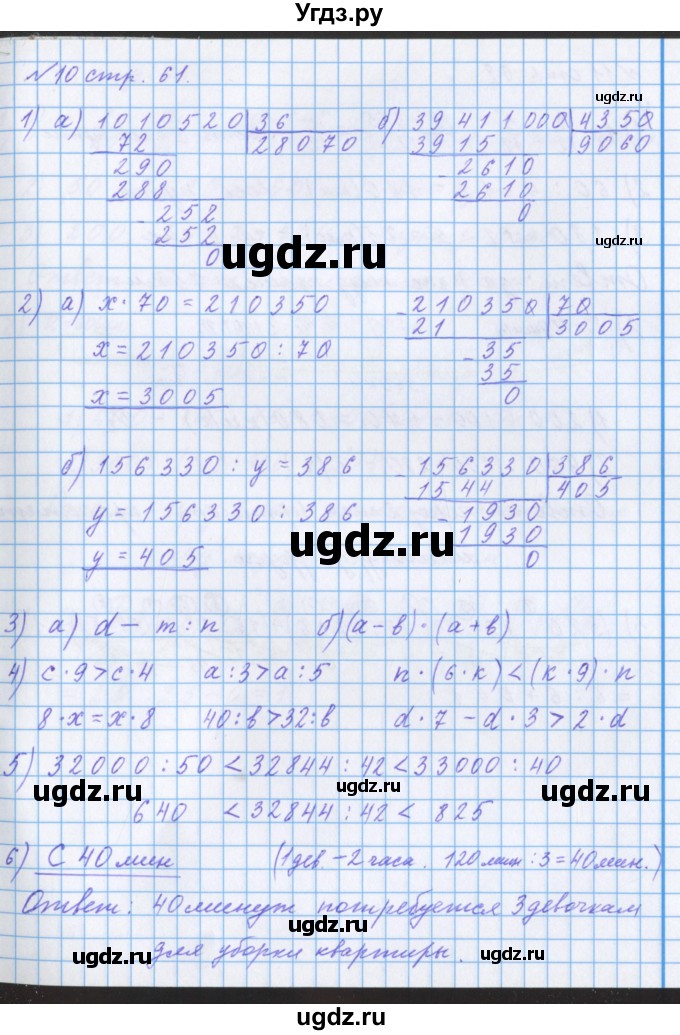 Угдз.ру
№10 стр. 61.
1) а) 1010520 | 36 б) 39411000 | 4350
72 28070 3915 9060
290 - 2610
288 2610
- 252 0
252
0
ugdz.ru
2) а) x · 70 = 210350 - 210350 | 70
x = 210350 : 70 21 3005
x = 3005 - 35
35
0
б) 156330 : y = 386 - 156330 | 386
y = 156330 : 386 1544 405
y = 405 - 1930
1930
0
ugdz.ru
3) а) d − m : n б) (a − b) · (a + b)
4) c · 9 > c · 4 a : 3 > a : 5 n · (6 · k) < (k · 9) · n
8 · x = x · 8 40 : b > 32 : b d · 7 − d · 3 > 2 · d
5) 32000 : 50 < 32844 : 42 < 33000 : 40
ugdz.ru ugdz.ru
640 < 32844 : 42 < 825
6) С 40 мин (1 дев. − 2 часа. 120 мин : 3 = 40 мин.)
Ответ: 40 минут потребуется 3 девочкам
для уборки квартиры.
ugdz.ru ugdz.ru
ugdz.ru